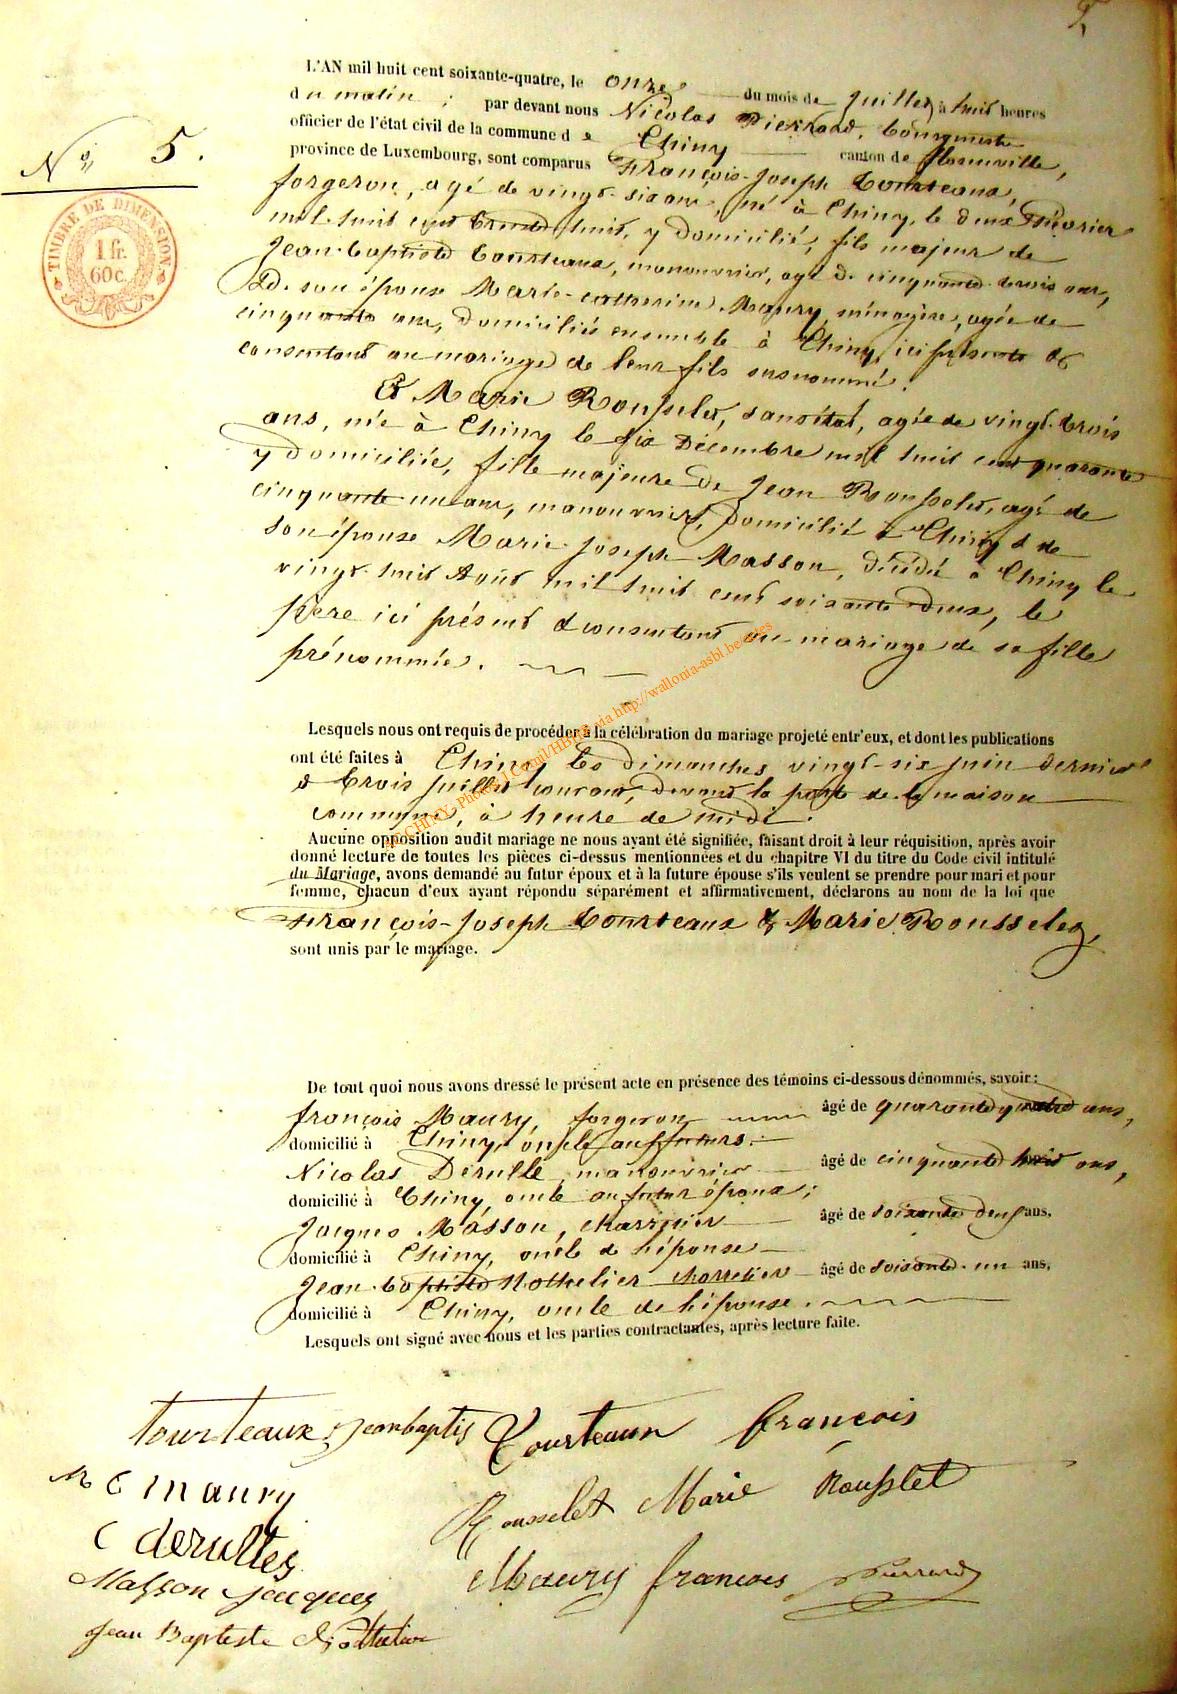 5,
L'AN mil huit cent soixante-quatre, le onze du mois de juillet à huit heures
du matin ; par devant nous Nicolas Pierrard, bourgmestre
officier de l'état civil de la commune de Chiny canton de florenville,
province de Luxembourg, sont comparus François-Joseph Tourteaux,
Nº 5.
TIMBRE DE DIMENSION
1 fr.
60c.
forgeron, agé de vingt-six ans, né à Chiny, le deux février
mil huit cent trente huit, y domicilié, fils majeur de
Jean-baptiste Tourteaux, manouvrier, agé de cinquante-trois ans,
& de son épouse Marie-catherine Maury, ménagère, agée de
cinquante ans, domiciliés ensemble à Chiny, ici présents &
consentant au mariage de leur fils susnommé.
Et Marie Rousselet, sans état, agée de vingt-trois
ans, née à Chiny le six Décembre mil huit cent quarante
y domiciliée, fille majeure de Jean Rousselet, agé de
cinquante un ans, manouvrier, domicilié à Chiny & de
son épouse Marie-Joseph Masson, décédée à Chiny le
vingt-huit Août mil huit cent soixante-deux, le
père ici présent & consentant au mariage de sa fille
prénommée.
Lesquels nous ont requis de procéder à la célébration du mariage projeté entr'eux, et dont les publications
ont été faites à Chiny, les dimanches vingt-six juin dernier
& trois juillet courant, devant la porte de la maison
commune, à heure de midi.
Aucune opposition audit mariage ne nous ayant été signifiée, faisant droit à leur réquisition, après avoir
donné lecture de toutes les pièces ci-dessus mentionnées et du chapitre VI du titre du Code civil intitulé
du Mariage, avons demandé au futur époux et à la future épouse s'ils veulent se prendre pour mari et pour
femme, chacun d'eux ayant répondu séparément et affirmativement, déclarons au nom de la loi que
François-Joseph Tourteaux & Marie Rousselet,
sont unis par le mariage.
De tout quoi nous avons dressé le présent acte en présence des témoins ci-dessous dénommés, savoir :
françois Maury, forgeron âgé de quarante quatre ans,
domicilié à Chiny, oncle aux futurs.
Nicolas Derulle, manouvrier âgé de cinquante huit ans,
domicilié à Chiny, oncle au futur époux ;
Jacques Masson, charretier âgé de soixante deux ans,
domicilié à Chiny, oncle de l'épouse
Jean-baptiste Nothelier charretier âgé de soixante-un ans,
domicilié à Chiny, oncle de l'épouse.
Lesquels ont signé avec nous et les parties contractantes, après lecture faite.
tourteaux jeanbaptis Tourteaux francois
M C maury Rousselet Marie Rousslet
derulles Maury francoes Pierrard
Masson Jacques
Jean Baptiste Nothelier
via http://wallonia-asbl.be